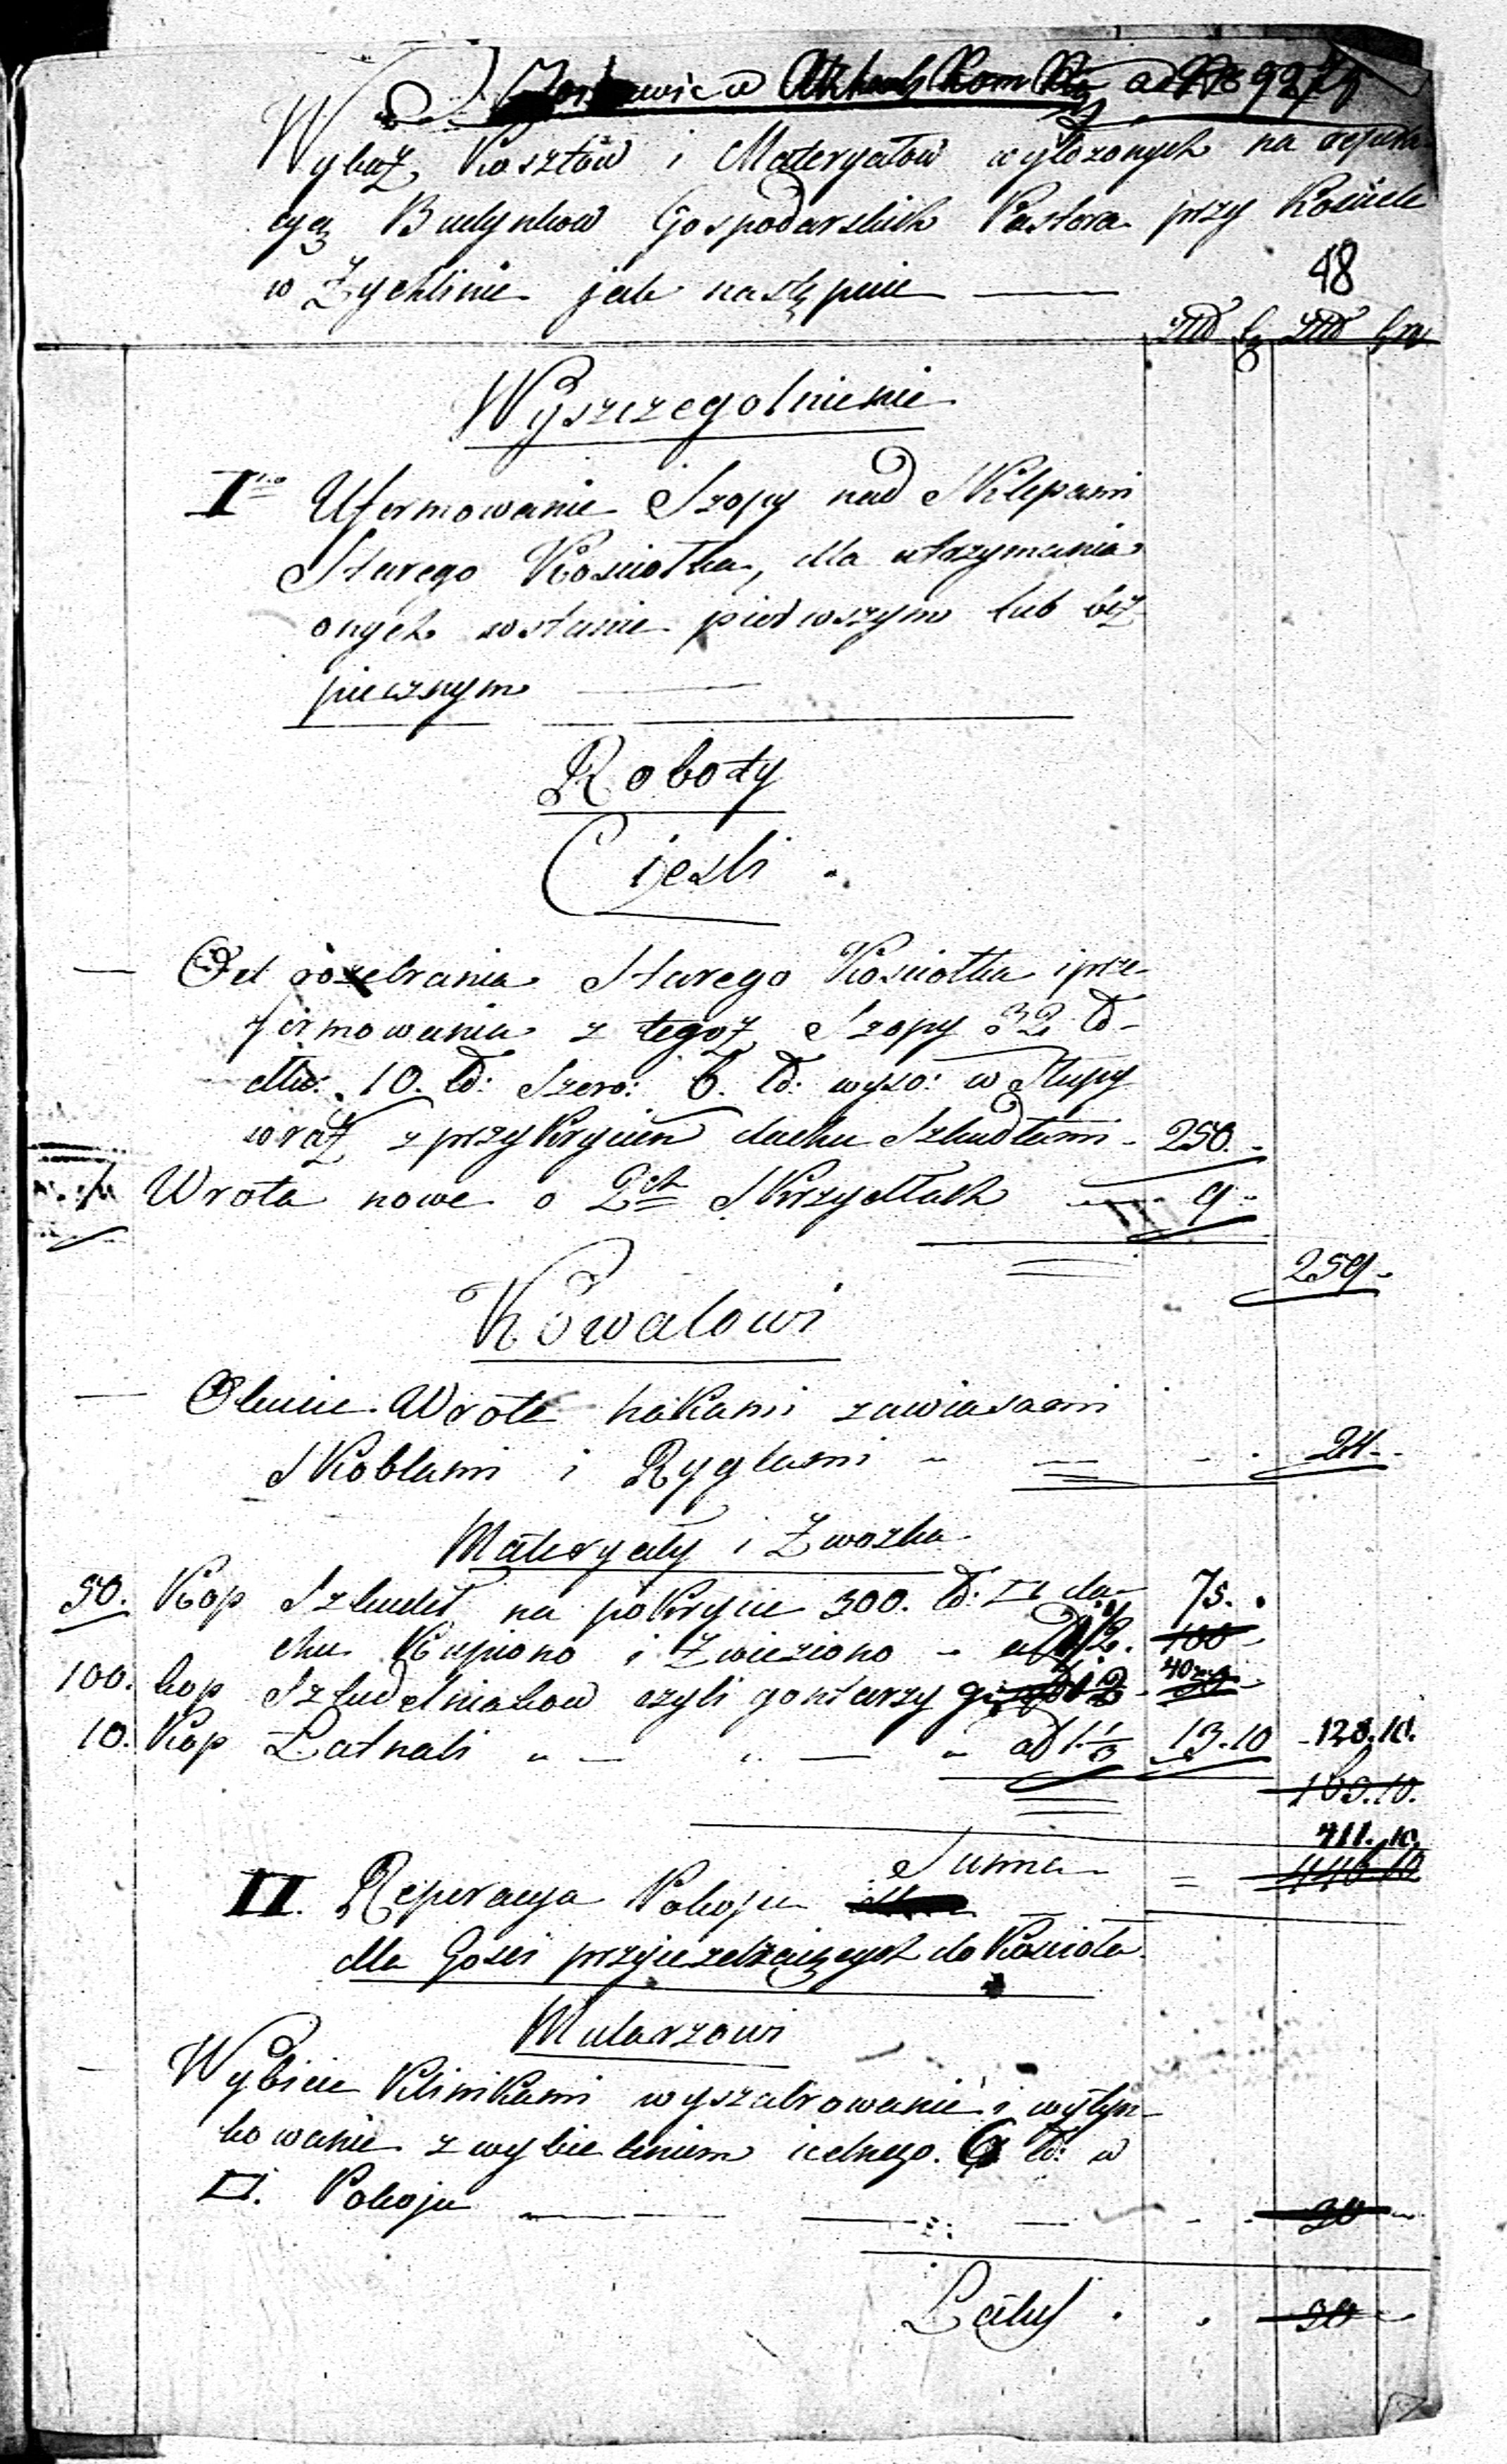 Wykaz Kosztów i Materyałow wyłożonych na repera-
cyą Budynkow Gospodarskich Pastora przy Kościele
w Zychlinie jak następuie
48
złł g złł gr
Wyszczegolnienie
I mo Uformowanie Szopy nad Sklepami
Starego Kosciołka, dla utrzymania
onych wstanie pierwszym lub bez
piecznym
Roboty
Cieśli
Od rozebrania Starego Kosciołka i prze-
formowania z tegoż Szopy 32 ł:
dłu: 10. ł: Szero: 6. ł: wyso: w Słupy
wraz z przykryciem dachu Szkudłami - 250.-
Wrota nowe o 2ch Skrzydłach 9-
259-
Kowalowi
Okucie Wrote hakami zawiasami
Skoblami i Ryglami - 24-
Materyały i Zwozka
50. Kop Szkudeł na pokrycie 300. ł: □ da- 75.
chu Kupiono i Zwieziono - 100
100. kop Szkudelniakow czyli gontarzy 40
10. Kop Łatnali " — " — " ad 1 1/3 13.10 128.10.
163.10.
411.10.
Summa = 446.10
II. Reperacya Pokoju
dla Gosci przyjezdzaiących do Kościoła
Mularzowi
Wybicie Klinikami wyszabrowanie i wytyn-
kowanie z wybieleniem iednego. ł: w
□. Pokoju 30
Latus . . 30